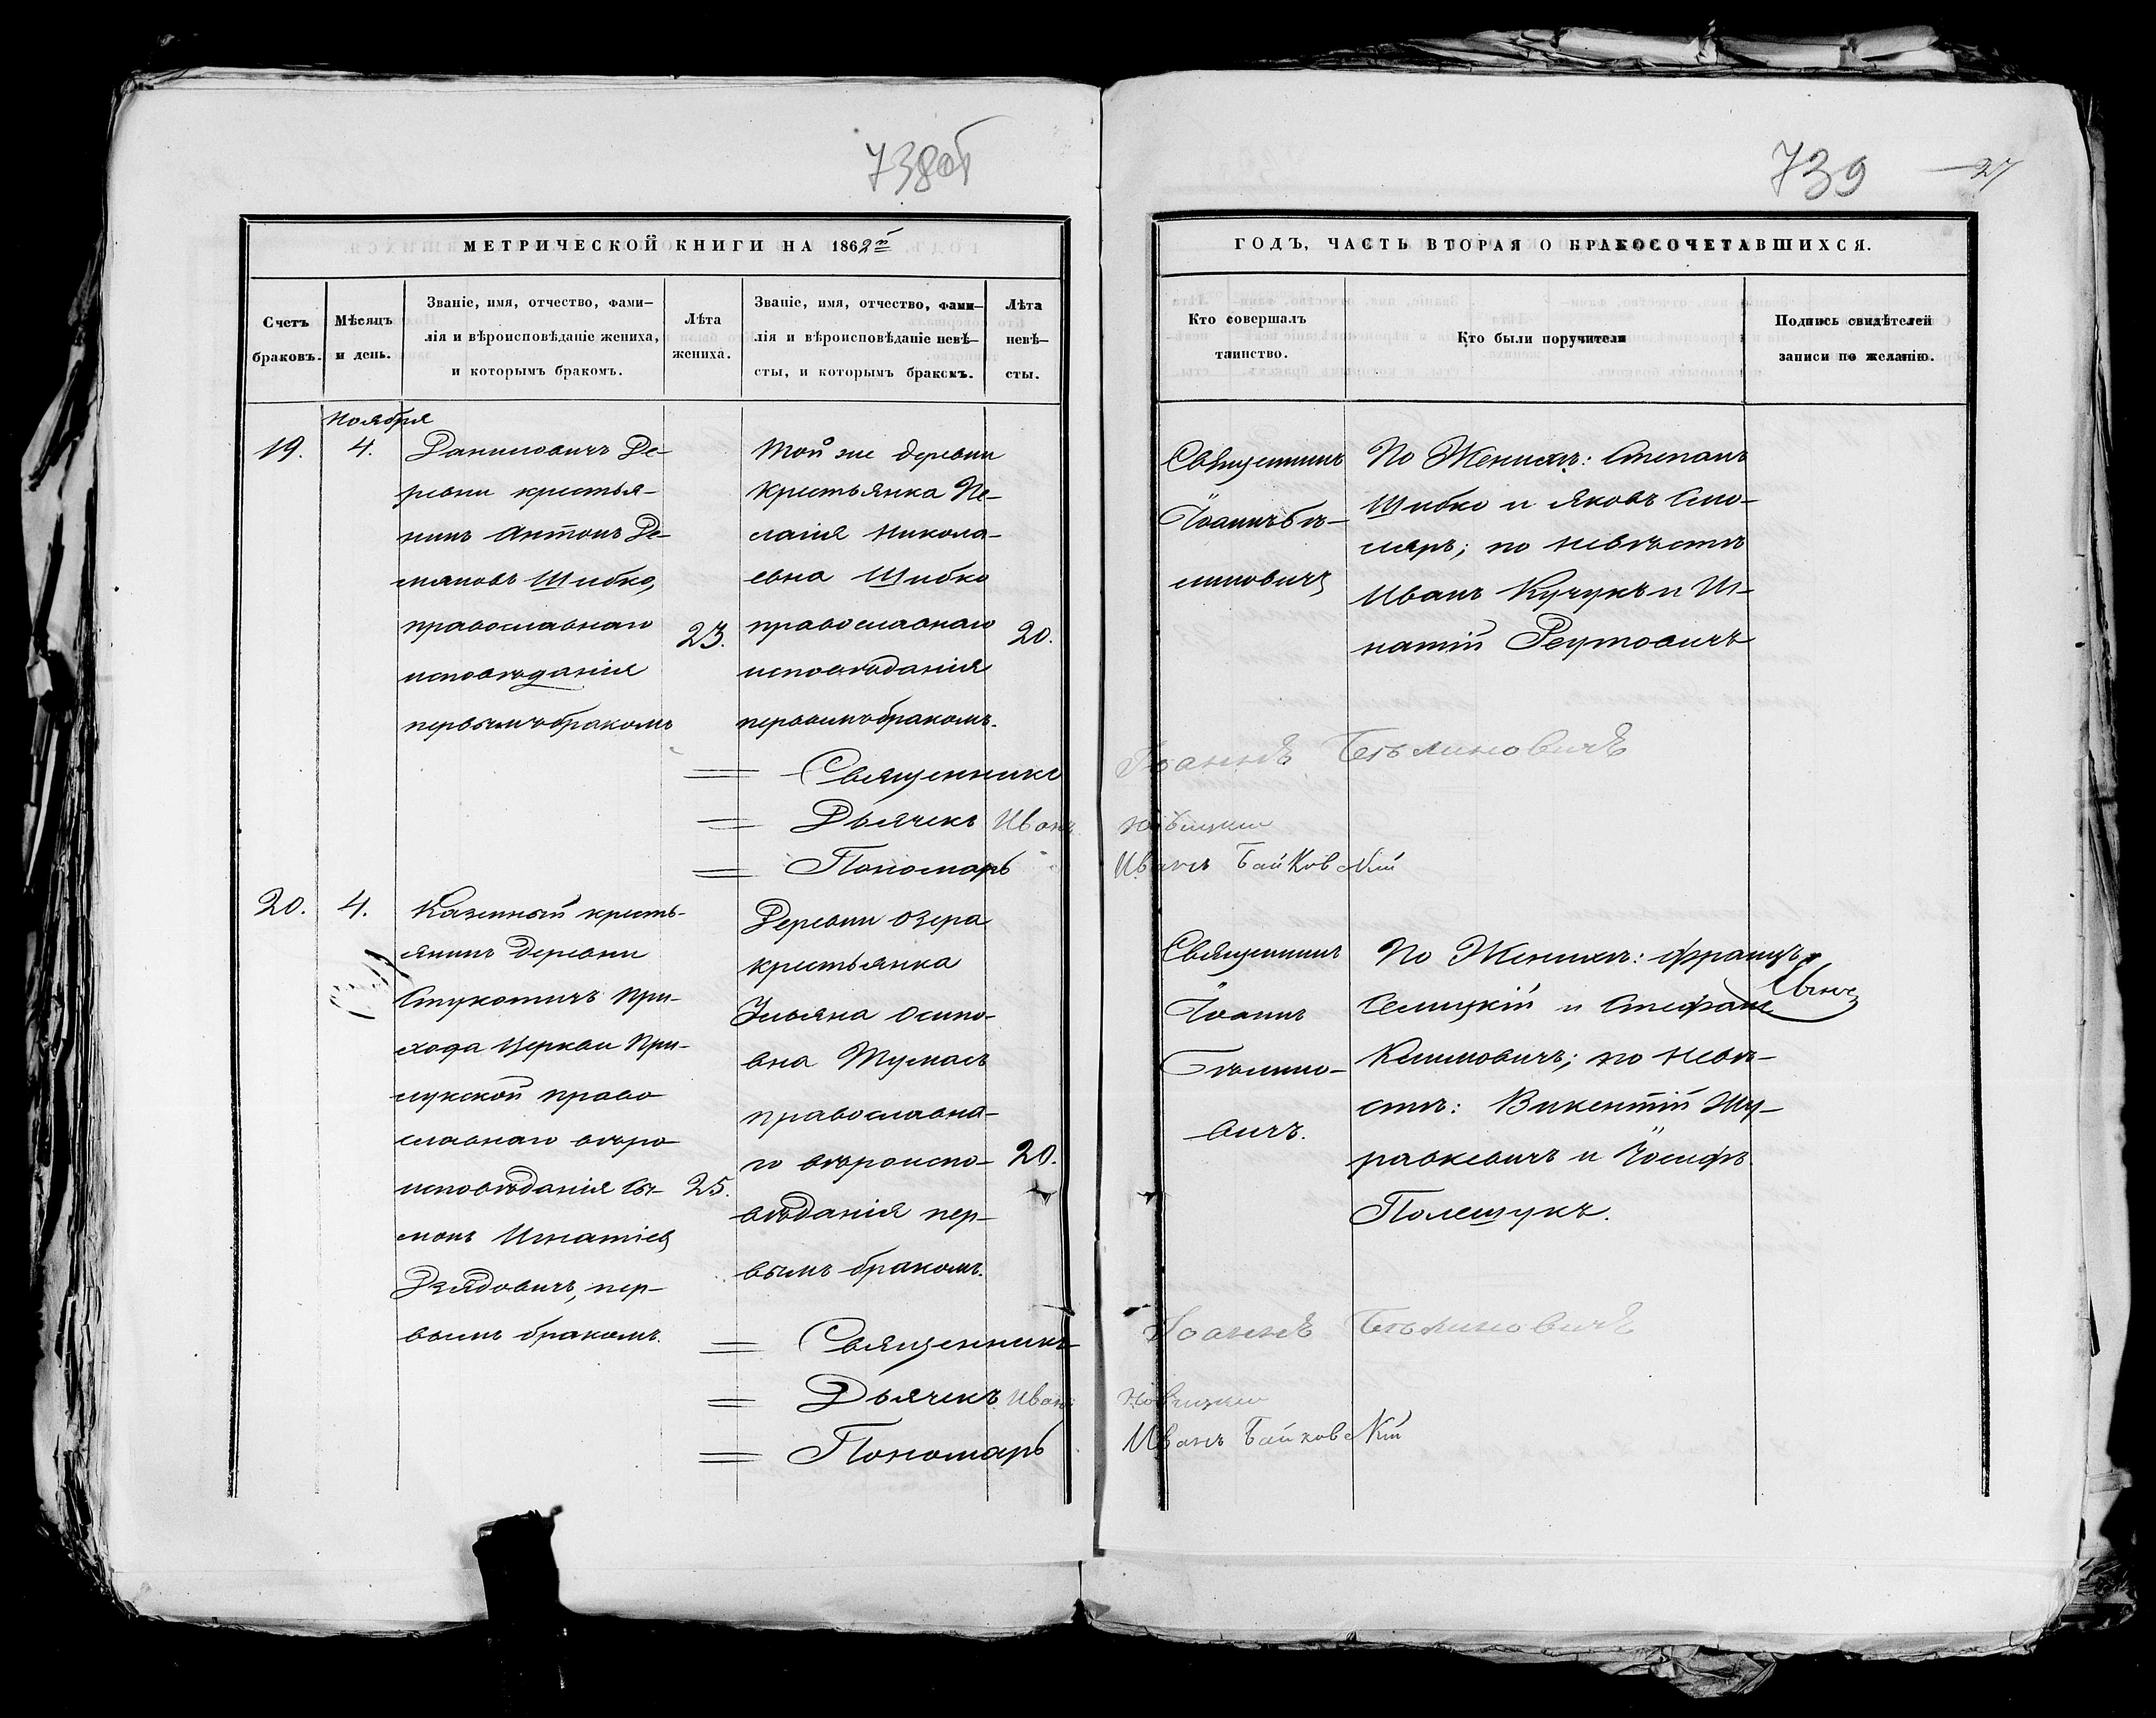 738об
739
27
МЕТРИЧЕСКОЙ КНИГИ НА 1862й
ГОДЪ, ЧАСТЬ ВТОРАЯ О БРАКОСОЧЕТАВШИХСЯ.
Счетъ
браковъ.
Мѣсяцъ
и день.
Званіе, имя, отчество, фами-
лія и вѣроисповѣданіе жениха,
и которымъ бракомъ.
Лѣта
жениха.
Званіе, имя, отчество, фами-
лія и вѣроисповѣданіе невѣ-
сты, и которымъ бракомъ.
Лѣта
невѣ-
сты.
Кто совершалъ
таинство.
Кто были поручители
Подпись свидѣтелей
записи по желанію.
19.
Ноября
4.
Даниловичъ Де-
ревни крестья-
нинъ Антонъ Де-
мяновъ Шибко,
православнаго
исповѣданія
первымъ бракомъ
23.
Той же деревни
крестьянка Пе-
лагія Никола-
евна Шибко
православнаго
исповѣданія
первымъ бракомъ.
20.
Священникъ
Іоаннъ Бѣ-
линовичъ
По Женихѣ: Степанъ
Шибко и Яковъ Сто-
ляръ; по невѣстѣ
Иванъ Кучукъ и Иг-
натій Реутовичъ
Священникъ Іоаннъ Бѣлиновичъ
Дьячекъ Иванъ Новицкій
Пономарь Иванъ Байковскій
20.
4.
Казенный кресть-
янинъ деревни
При-
хода Церкви При-
лукской право
славнаго вѣро
исповѣданія Си-
монъ Игнатіев
Дзядовичъ, пер-
вымъ бракомъ.
25.
Деревни Озера
крестьянка
Ульяна Осипо-
вна
православна-
го вѣроиспо-
вѣданія пер-
вымъ бракомъ.
20.
Священникъ
Іоаннъ
Бѣлино-
вичъ.
По Женихѣ: Францъ
Селицкій и Стефанъ
Климовичъ; по невѣ-
стѣ: Викентій Жу-
равкевичъ и Іосифъ
Полещукъ.
Священникъ Іоаннъ Бѣлиновичъ
Дьячекъ Иванъ Новицкій
Пономарь Иванъ Байковскій